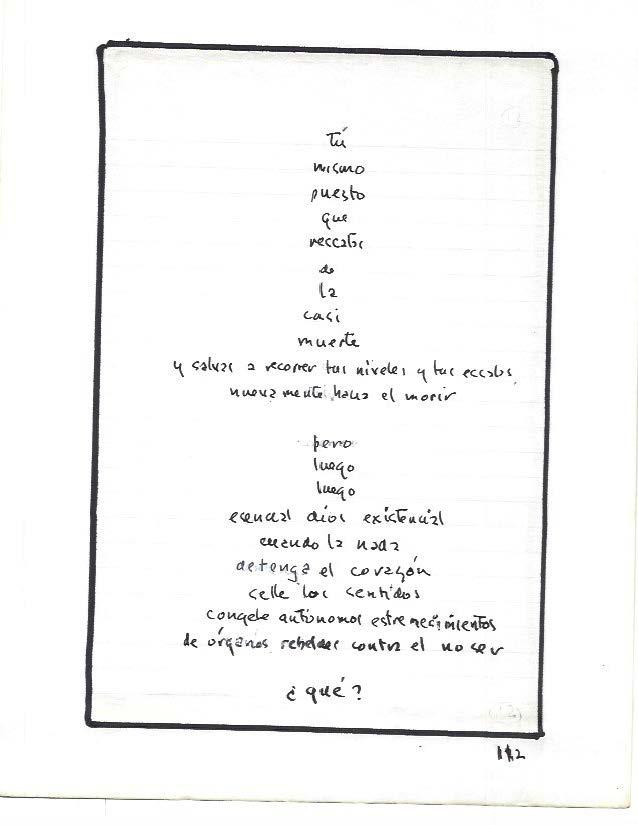 Tú
mismo
puesto
que
rescatas
de
la
casi
muerte
y salvas a recorrer tus niveles y tus
nuevamente hacia el morir
pero
luego
luego
esencial dios existencial
cuando la nada
detenga el corazón
selle los sentidos
congele autónomos estremecimientos
de órganos rebeldes contra el no ser
¿qué?
(12)
112